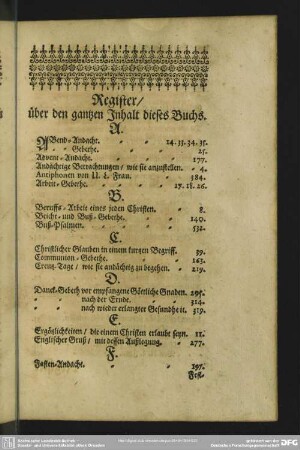 Register/
über den gantzen Inhalt dieses Buchs.
A.
Abend-Andacht. 24. 33. 34. 35.
- - Gebethe. 25.
Advent-Andacht. 177.
Andächtige Betrachtungen/ wie sie anzustellen. 4.
Antiphonen von U. L. Frau. 384.
Arbeit-Gebethe. 17. 18. 26.
B.
Beruffs-Arbeit eines jeden Christen. 8.
Beicht- und Buß-Gebethe. 140.
Buß-Psalmen. 532.
C.
Christlicher Glauben in einem kurtzen Begriff. 39.
Communion-Gebethe. 163.
Creutz-Tage/ wie sie andächtig zu begehen. 219.
D.
Danck-Gebeth vor empfangene Göttliche Gnaden. 295.
nach der Ernde. 314.
nach wieder erlangter Gesundheit. 319.
E.
Ergözlichkeiten/ die einem Christen erlaubt seyn. 11.
Englischer Gruß/ mit dessen Außlegung. 277.
F.
Fasten-Andacht. 197.
Fest-